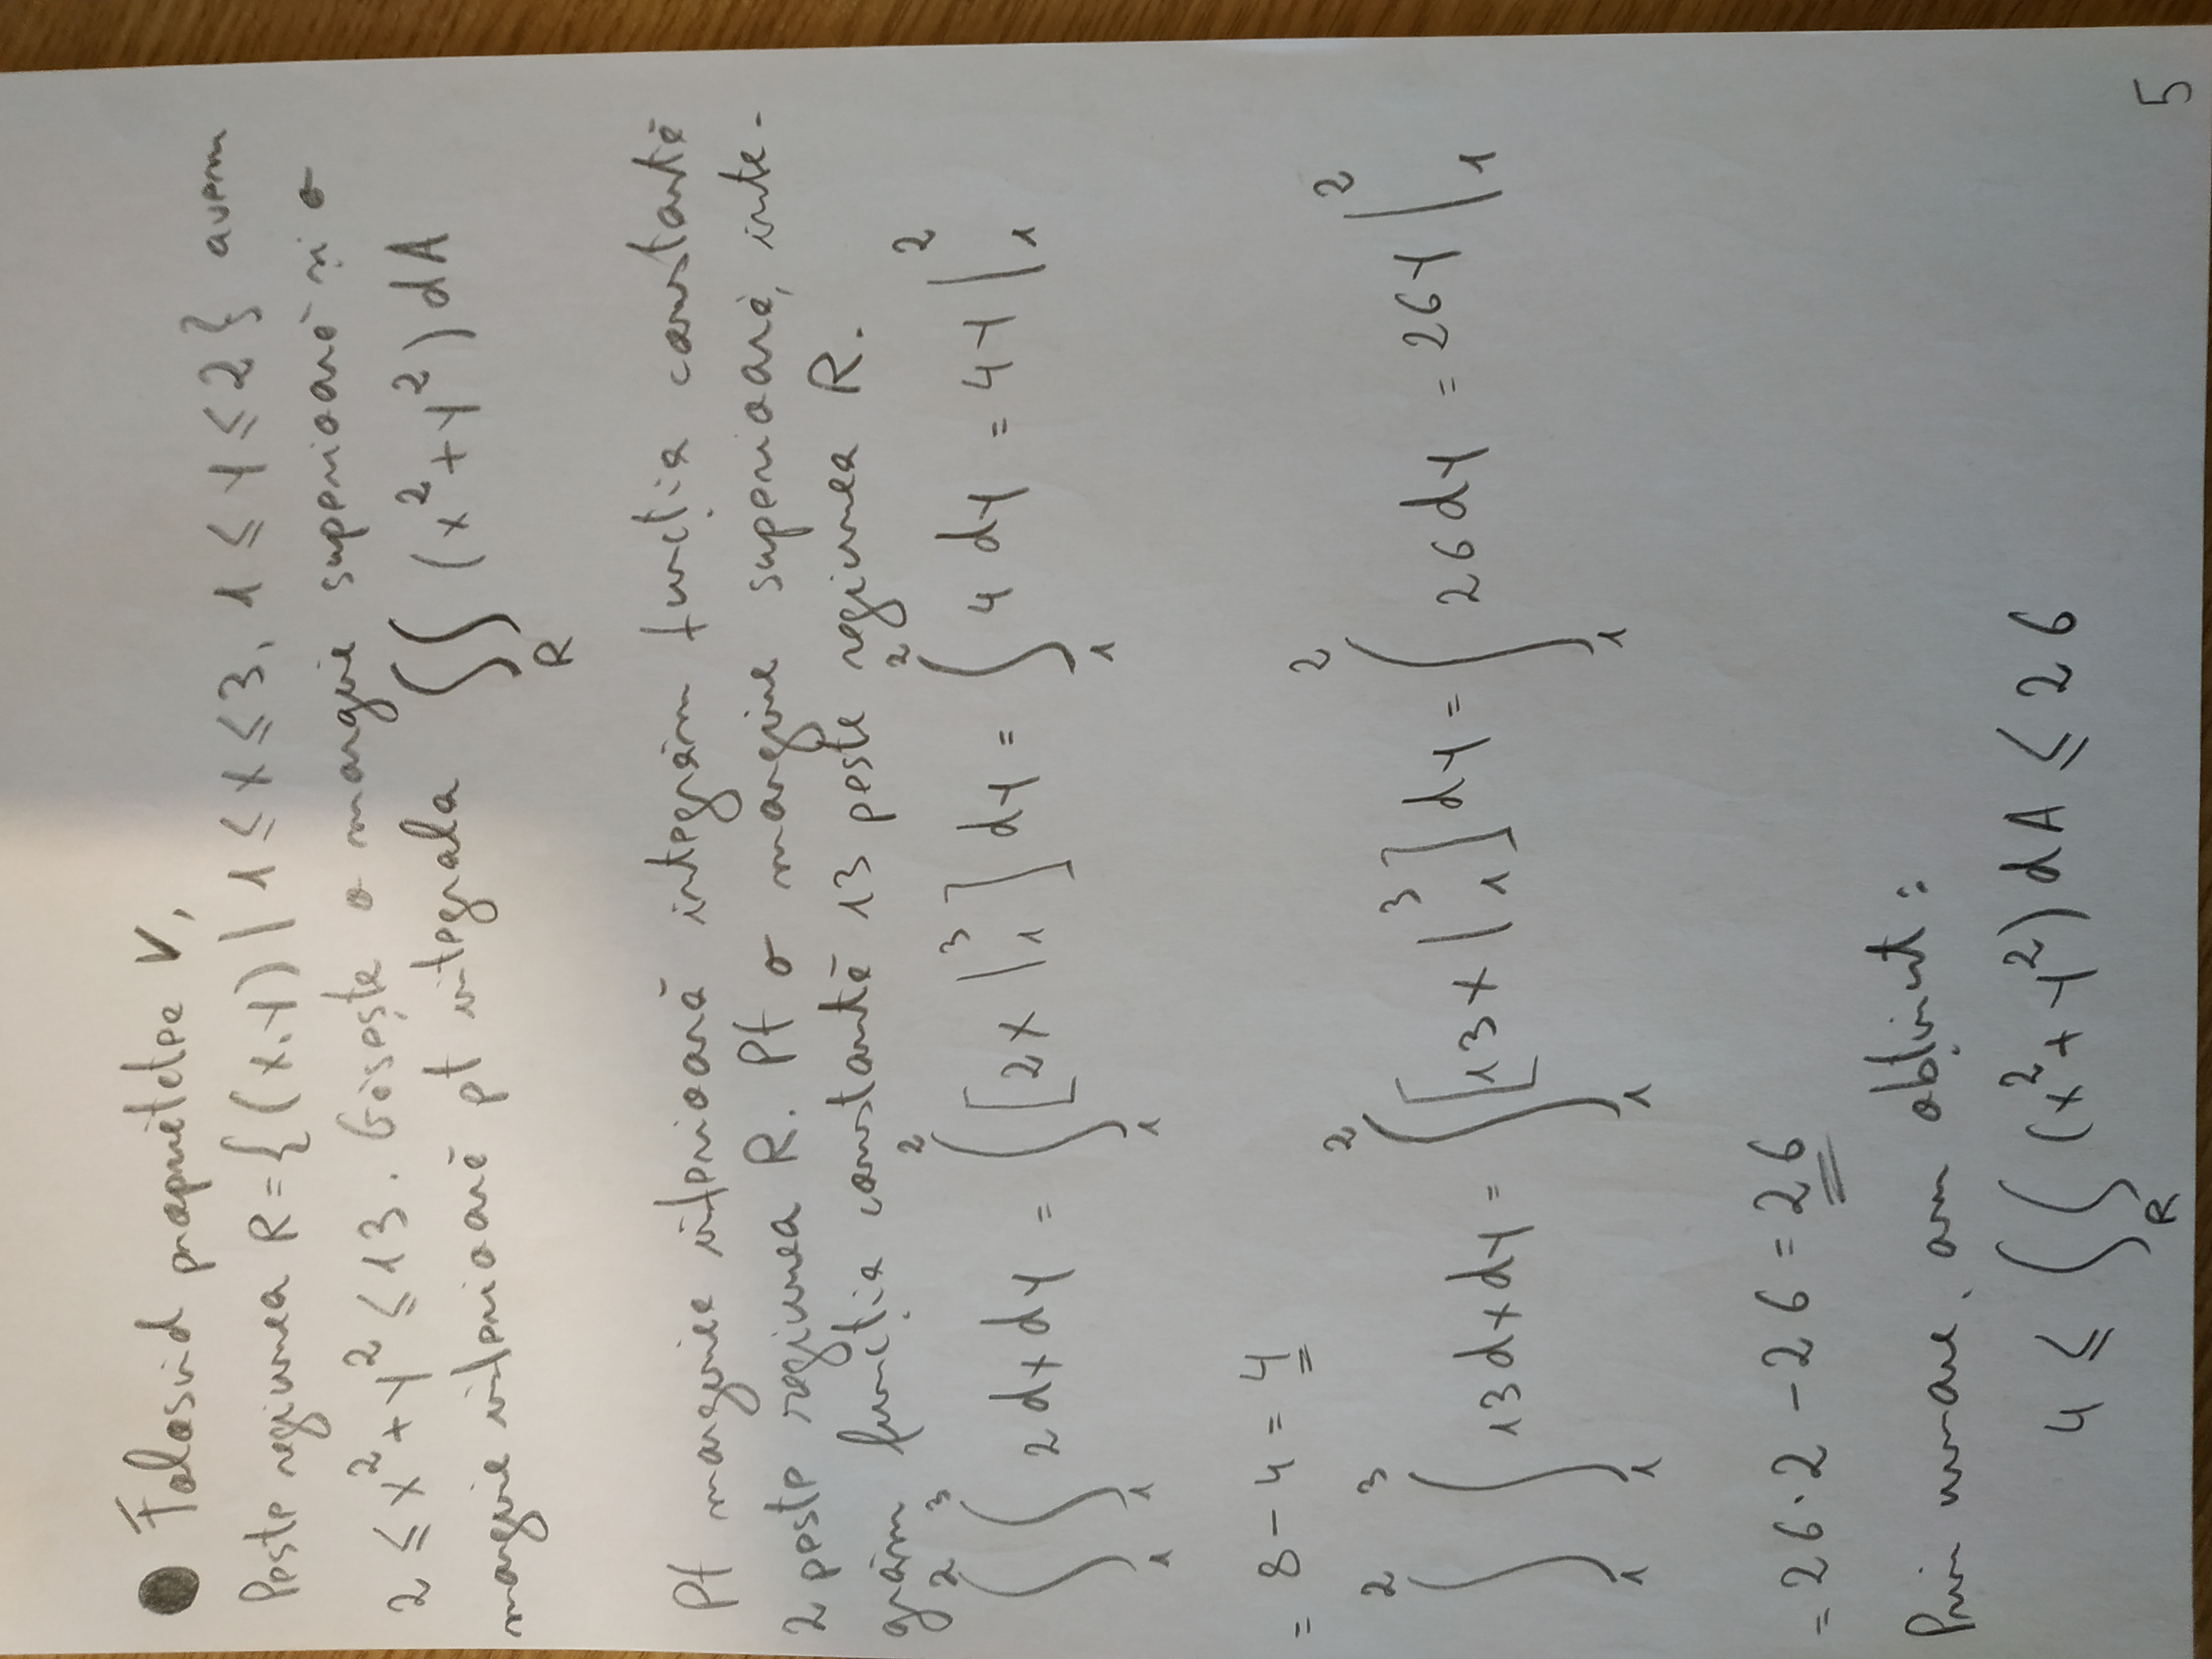 ● Folosind proprietatea V,
Peste regiunea R = {(x,y) | 1 ≤ x ≤ 3, 1 ≤ y ≤ 2} avem
2 ≤ x² + y² ≤ 13. Găsește o margine superioară și o
margine inferioară pt integrala ∬_R (x² + y²) dA
Pt marginea inferioară integrăm funcția constantă
2 peste regiunea R. Pt o margine superioară, inte-
grăm funcția constantă 13 peste regiunea R.
∫_1^2 ∫_1^3 2 dx dy = ∫_1^2 [2x |_1^3] dy = ∫_1^2 4 dy = 4y |_1^2
= 8 - 4 = 4
∫_1^2 ∫_1^3 13 dx dy = ∫_1^2 [13x |_1^3] dy = ∫_1^2 26 dy = 26y |_1^2
= 26·2 - 26 = 26
Prin urmare, am obținut:
4 ≤ ∬_R (x² + y²) dA ≤ 26
5